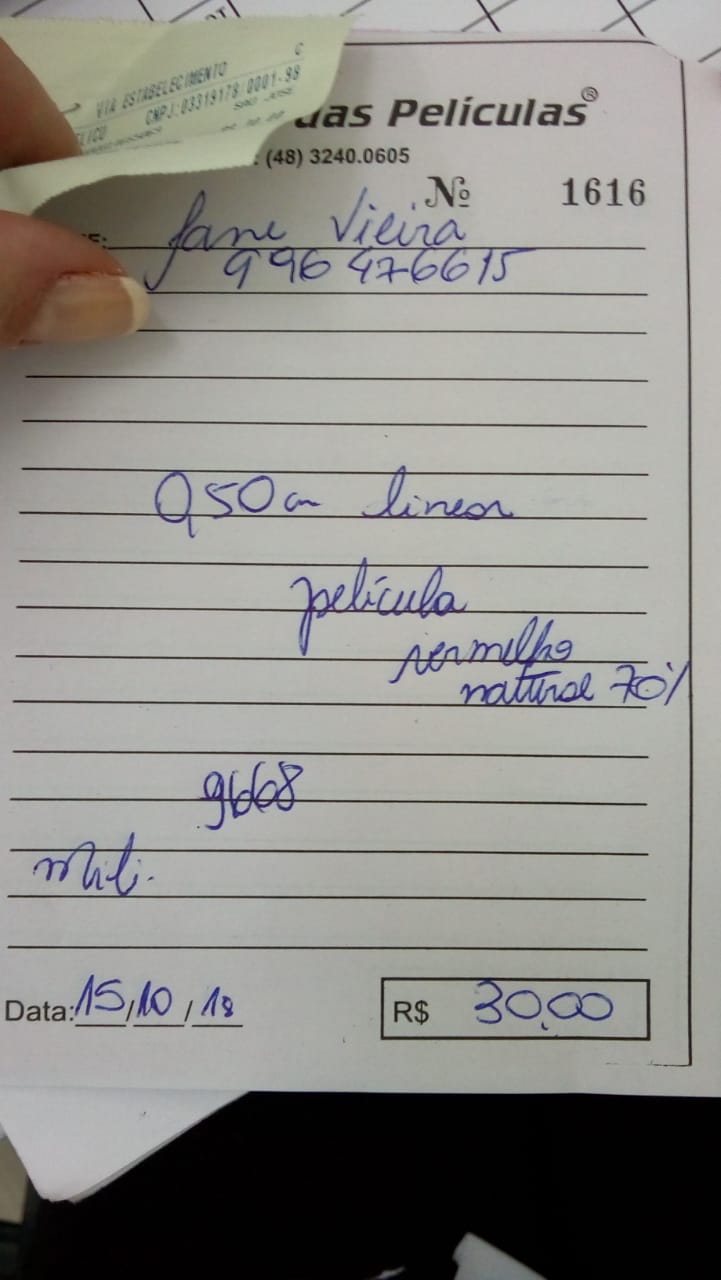 C
VIA ESTABELECIMENTO
CNPJ:03319178/0001-98
SAO JOSE
das Películas®
: (48) 3240.0605
Nº 1616
Jane Vieira
996476615
0,50 cm linear
película
vermelho
natural 70%
9668
Data: 15/10/18
R$ 30,00